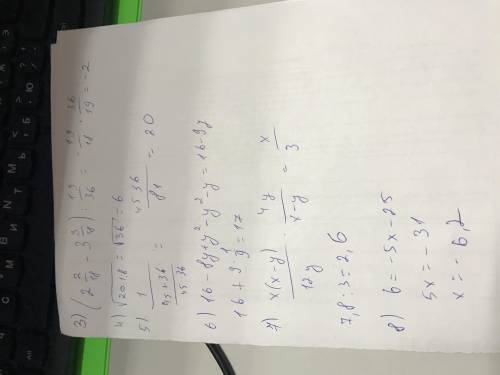 3) (2 2/18 - 3 3/18) : 19/36 = - 19/18 · 36/19 = -2
4) √20·1,8 = √36 = 6
5) 1/((45+36)/(45·36)) = (45·36)/81 = 20
6) 16-8y+y²-y²-y = 16-9y
16+9·1/9=17
7) x(x-y)/12y · 4y/(x-y) = x/3
7,8:3=2,6
8) 6=-5x-25
5x=-31
x=-6,2